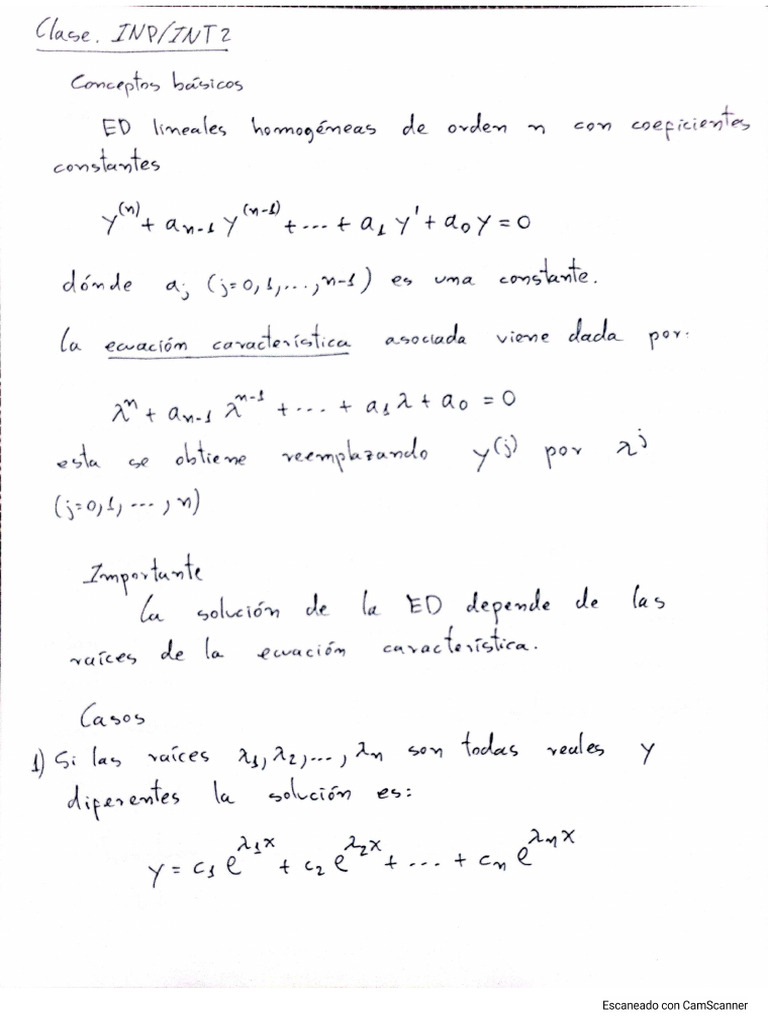 Clase. INP/INT2
Conceptos básicos
ED lineales homogéneas de orden n con coeficientes
constantes
y^(n) + a_{n-1} y^(n-1) + ... + a_1 y' + a_0 y = 0
dónde a_j (j=0,1,...,n-1) es una constante.
La ecuación característica asociada viene dada por:
λ^n + a_{n-1} λ^{n-1} + ... + a_1 λ + a_0 = 0
esta se obtiene reemplazando y^(j) por λ^j
(j=0,1, ..., n)
Importante
La solución de la ED depende de las
raíces de la ecuación característica.
Casos
1) Si las raíces λ_1, λ_2, ..., λ_n son todas reales y
diferentes la solución es:
y = c_1 e^{λ_1 x} + c_2 e^{λ_2 x} + ... + c_n e^{λ_n x}
Escaneado con CamScanner